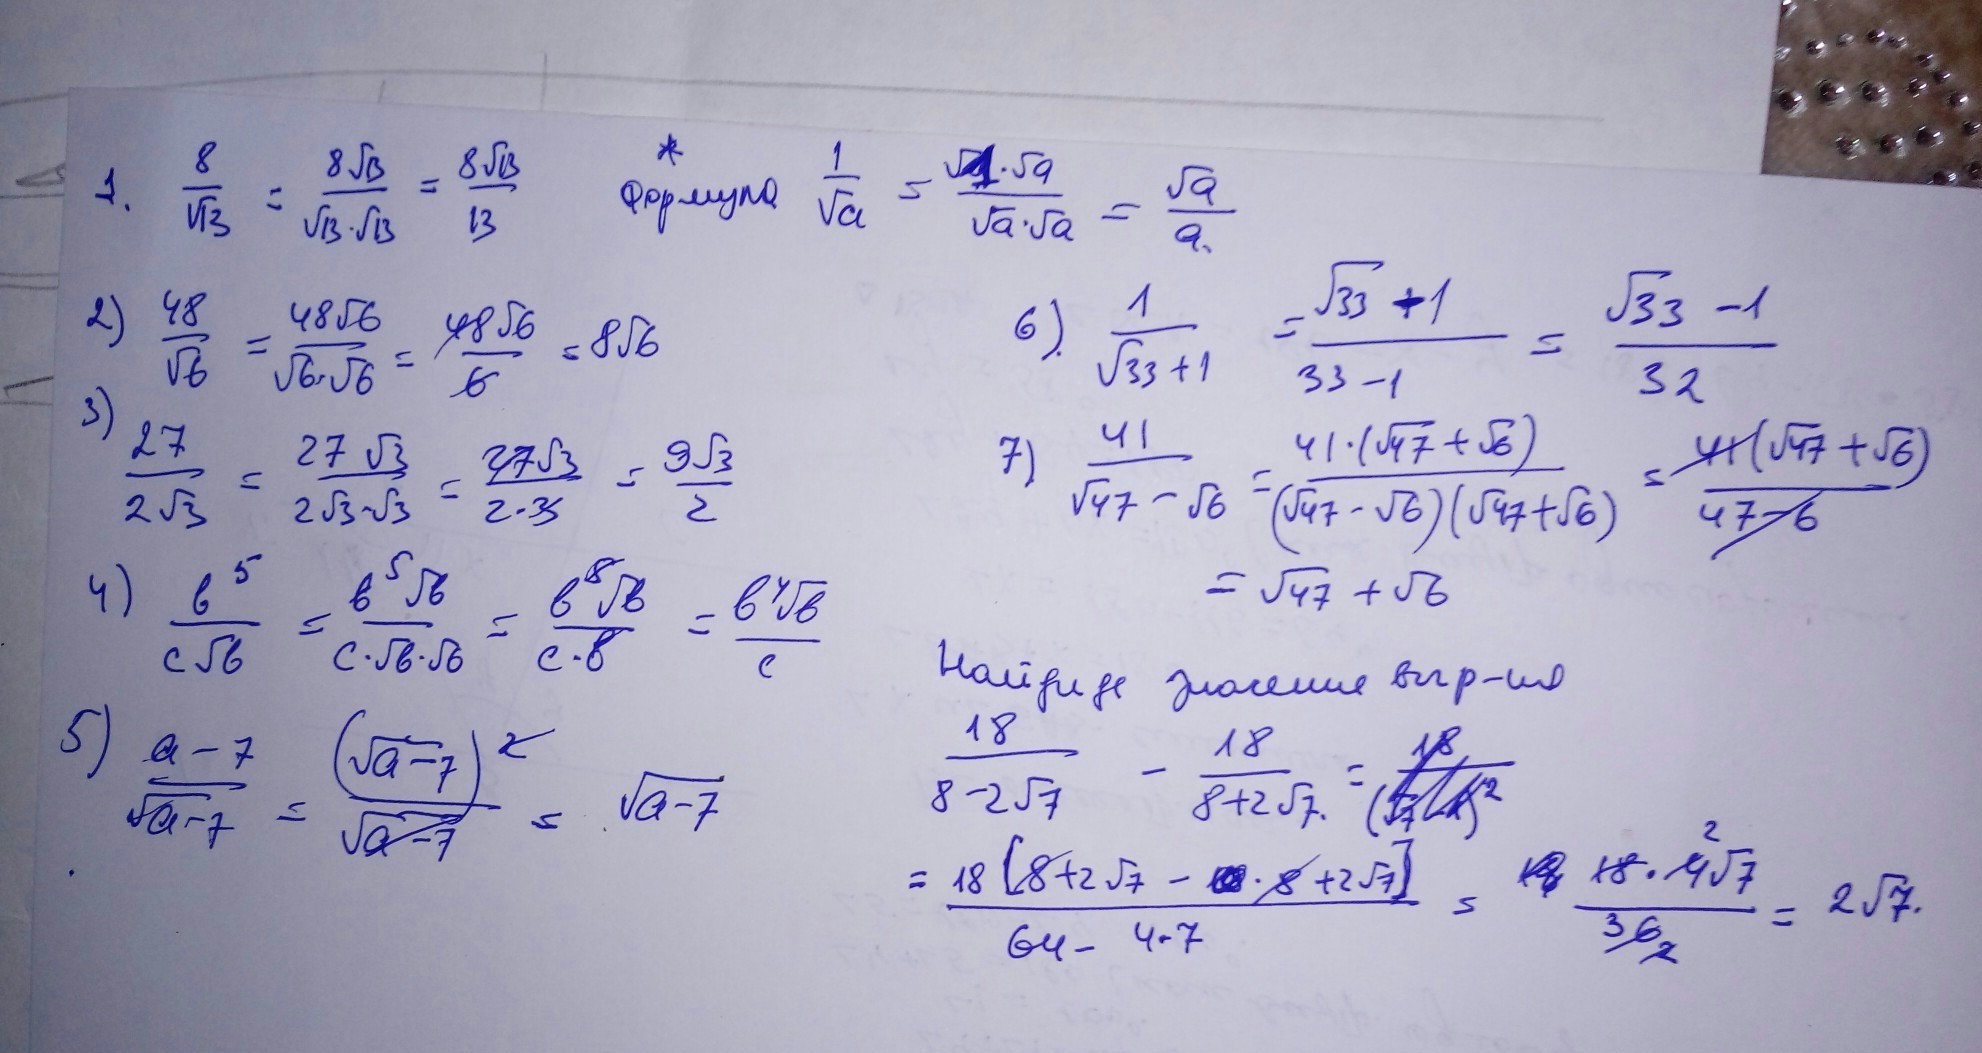 1. 8/√13 = 8√13/√13·√13 = 8√13/13
*
Формула 1/√a = √1·√a/√a·√a = √a/a.
2) 48/√6 = 48√6/√6·√6 = 48√6/6 = 8√6
3) 27/2√3 = 27√3/2√3·√3 = 27√3/2·3 = 9√3/2
4) b⁵/c√b = b⁵√b/c·√b·√b = b⁵√b/c·b = b⁴√b/c
5) a-7/√a-7 = (√a-7)²/√a-7 = √a-7
6) 1/√33+1 = √33+1/33-1 = √33-1/32
7) 41/√47-√6 = 41·(√47+√6)/(√47-√6)(√47+√6) = 41(√47+√6)/47-6
= √47+√6
Найдите значение выр-ия
18/8-2√7 - 18/8+2√7. =
= 18[8+2√7 - 8+2√7]/64-4·7 = 18·4√7/36 = 2√7.